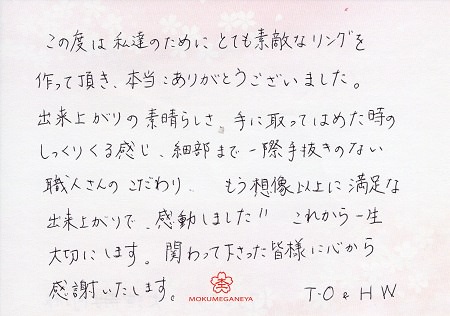 この度は私達のためにとても素敵なリングを
作って頂き、本当にありがとうございました。
出来上がりの素晴らしさ、手に取ってはめた時の
しっくりくる感じ、細部まで一際手抜きのない
職人さんのこだわり、もう想像以上に満足な
出来上がりで、感動しました!! これから一生
大切にします。関わって下さった皆様に心から
感謝いたします。
MOKUMEGANEYA
T・O & H W